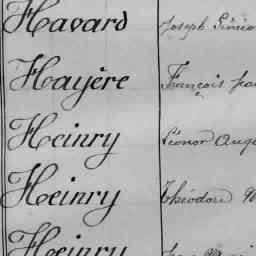 Havard Joseph
Hayère François
Heinry Léonor
Heinry Théodore
Heinry